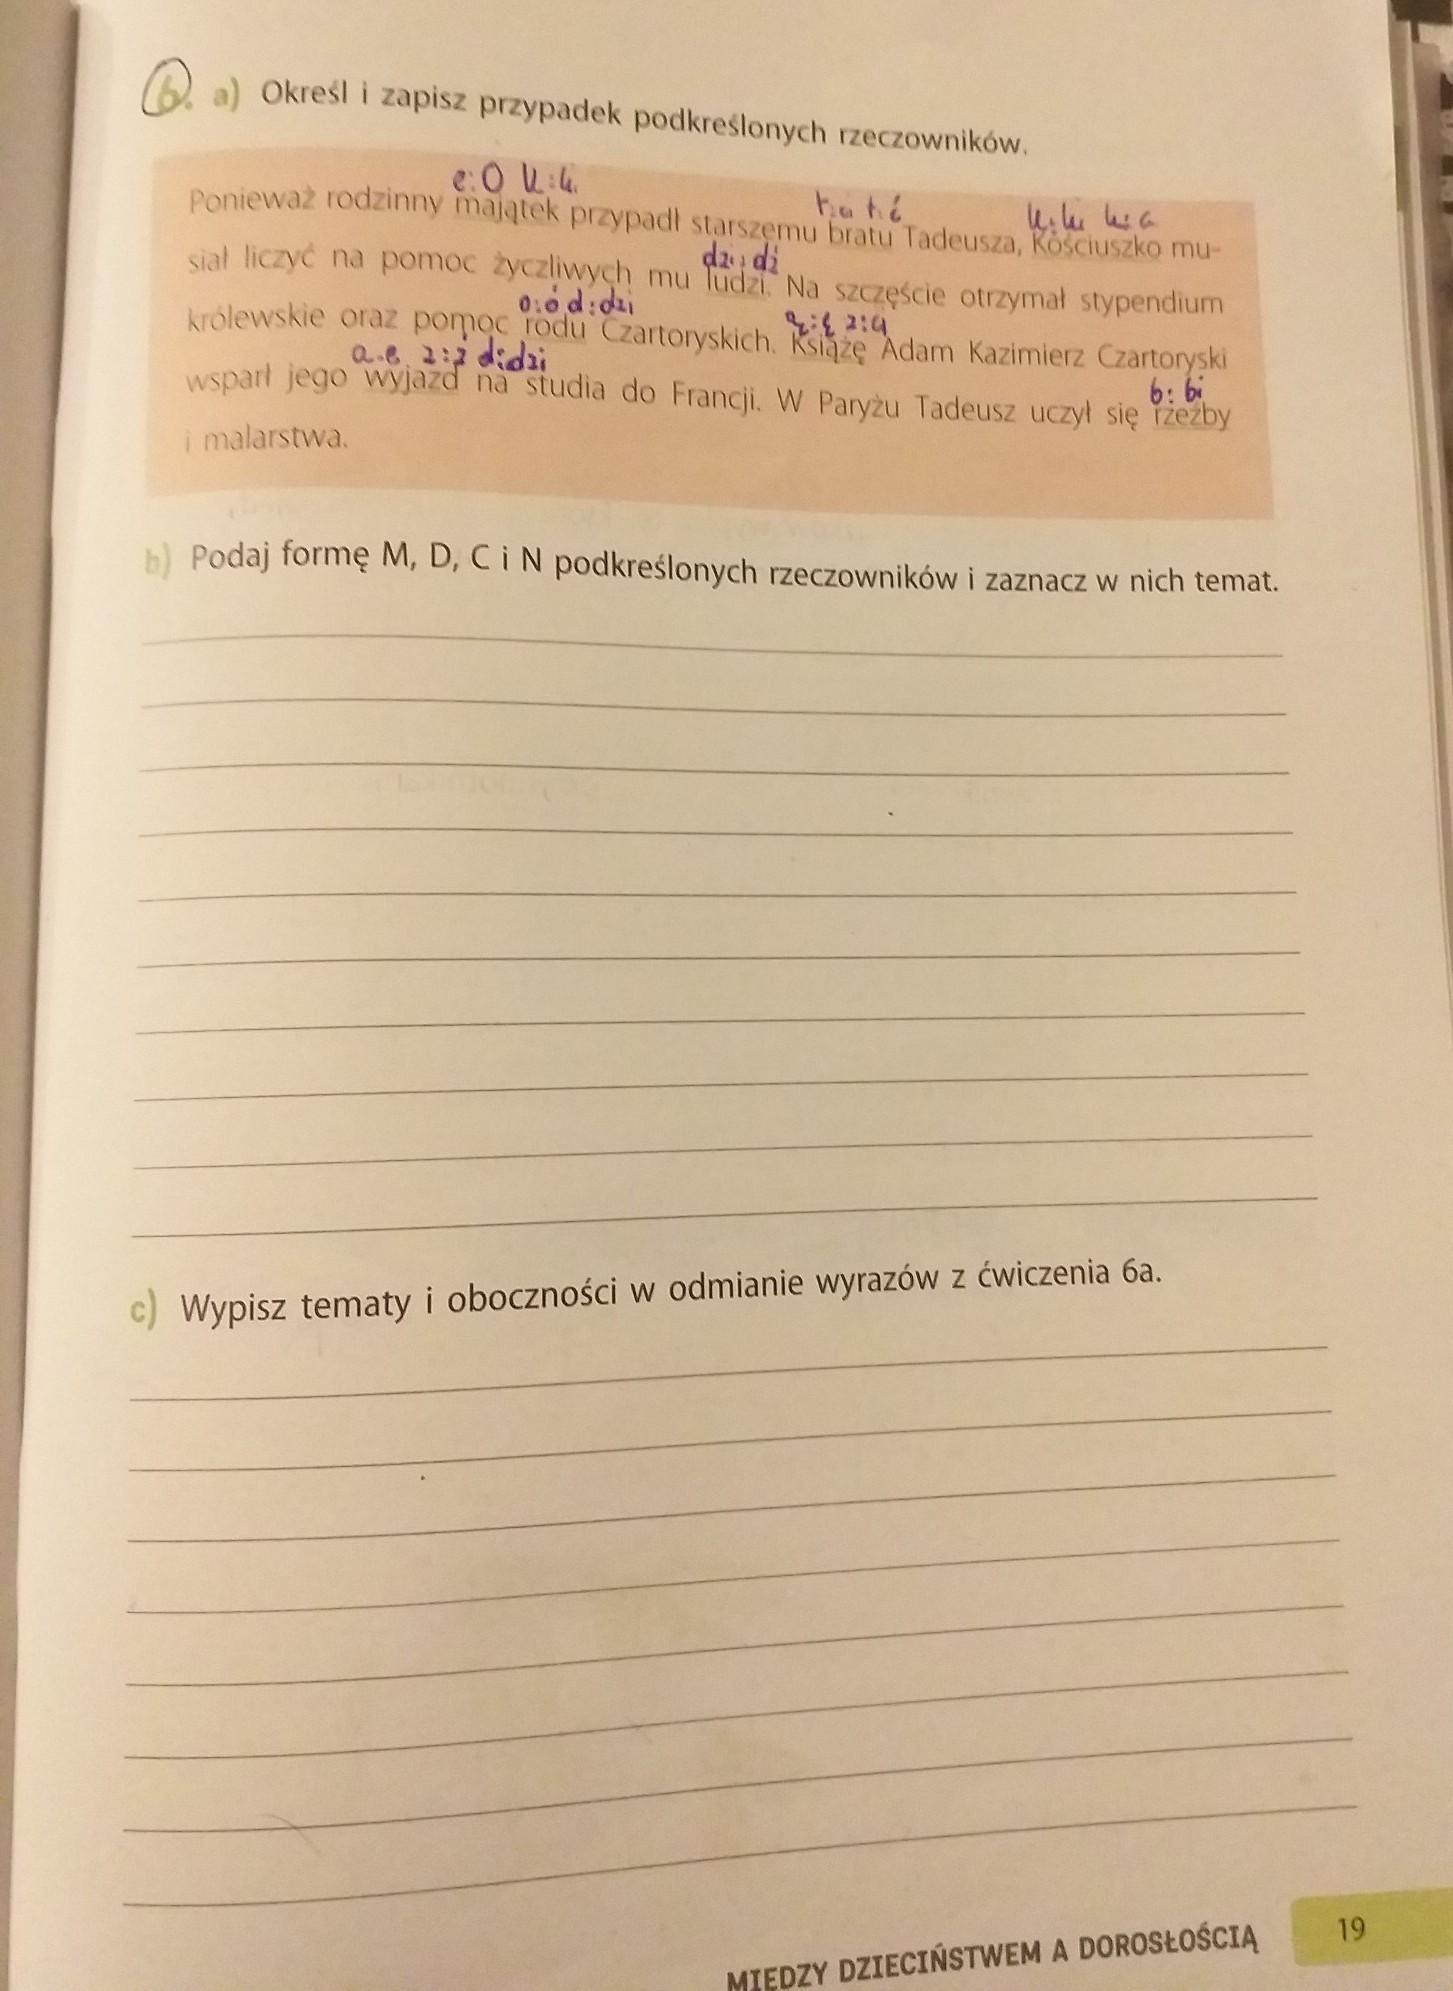 6. a) Określ i zapisz przypadek podkreślonych rzeczowników.
e:0 k:k.
Ponieważ rodzinny majątek przypadł starszemu bratu Tadeusza, Kościuszko mu-
dzi:dź
siał liczyć na pomoc życzliwych mu ludzi. Na szczęście otrzymał stypendium
o:ó d:dzi
królewskie oraz pomoc rodu Czartoryskich. Książę Adam Kazimierz Czartoryski
a:e z:ź d:dzi b:bi
wsparł jego wyjazd na studia do Francji. W Paryżu Tadeusz uczył się rzeźby
i malarstwa.
b) Podaj formę M, D, C i N podkreślonych rzeczowników i zaznacz w nich temat.
c) Wypisz tematy i oboczności w odmianie wyrazów z ćwiczenia 6a.
MIĘDZY DZIECIŃSTWEM A DOROSŁOŚCIĄ 19